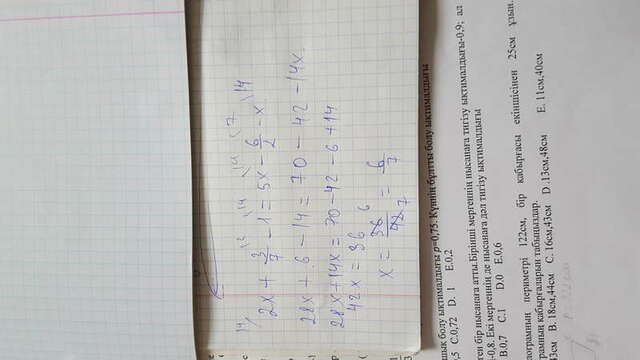 14 2 14 14 7 14
2x + 3/7 - 1 = 5x - 6/2 - x
28x + 6 - 14 = 70 - 42 - 14x
28x + 14x = 70 - 42 - 6 + 14
42x = 36
x = 36/42 = 6/7
6
7
болу ықтималдығы р=0,75. Күннің бұлтты болу ықтималдығы
,5 С.0,72 D. 1 E.0,2
бір нысанаға атты.Бірінші мергеннің нысанаға тигізу ықтималдығы-0,9; ал
-0,8. Екі мергеннің де нысанаға дәл тигізу ықтималдығы
B.0,7 C.1 D.0 E.0,6
периметрі 122см, бір қабырғасы екіншісінен 25см ұзын.
қабырғаларын табыңыздар.
43см B. 18см,44см C. 16см,43см D .13см,48см E. 11см,40см